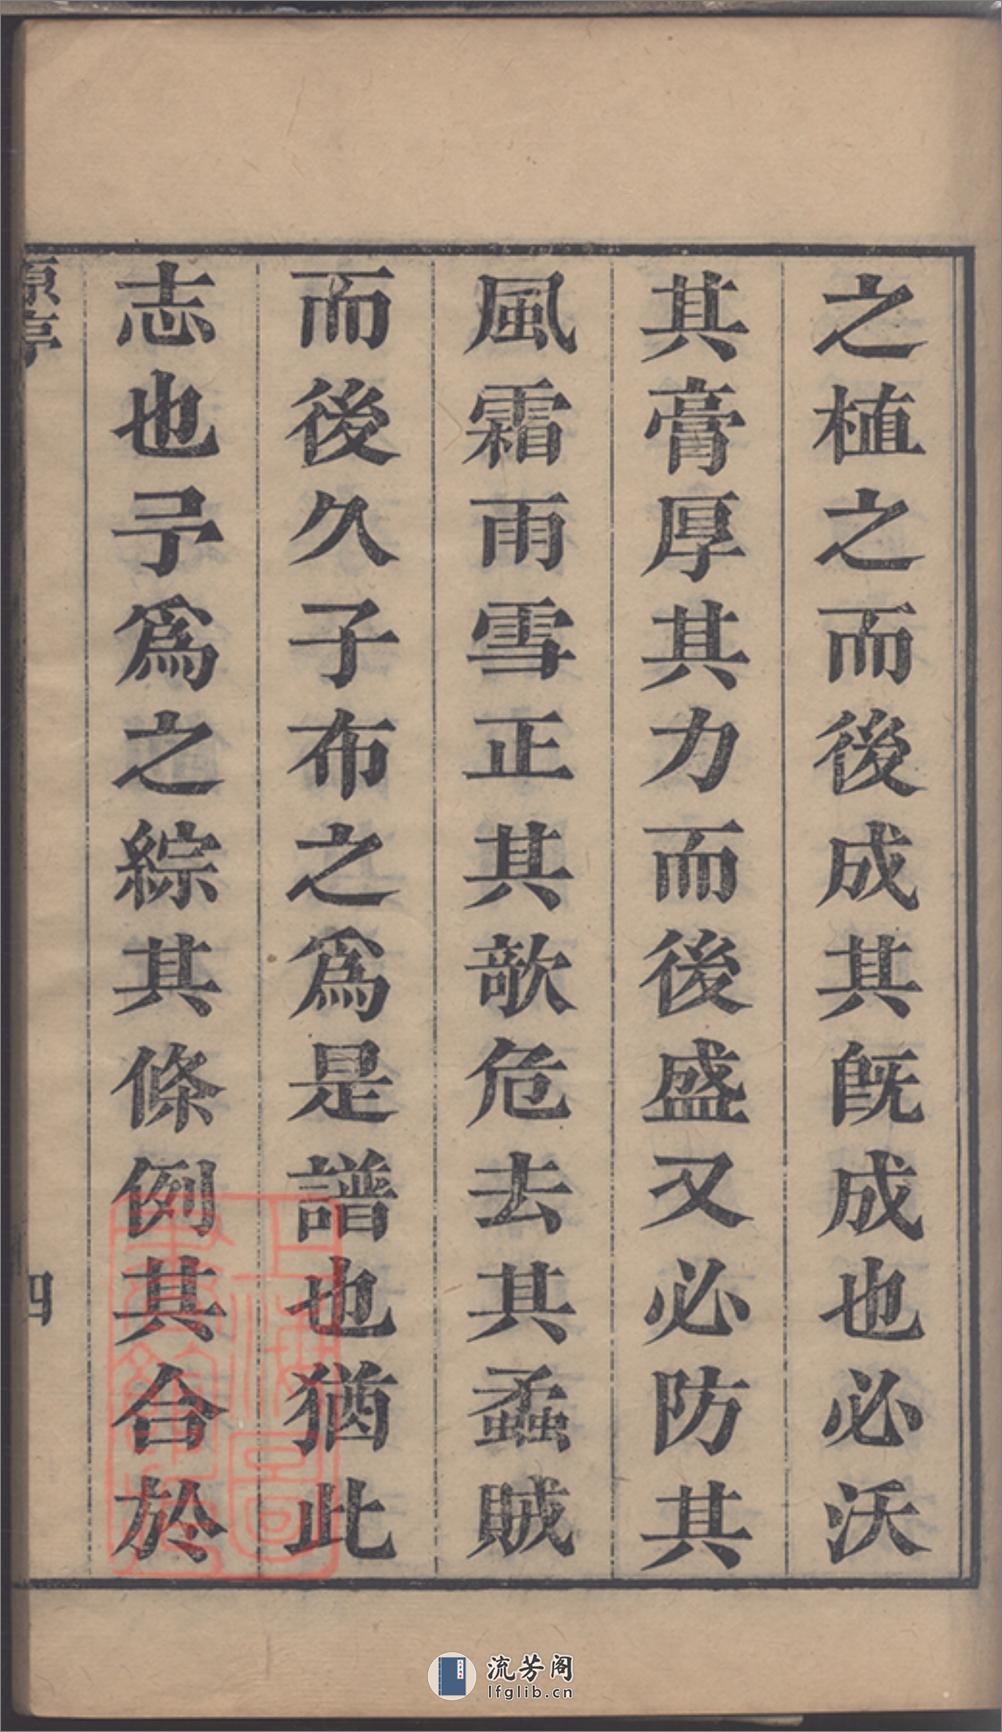 之植之而後成其旣成也必沃
其膏厚其力而後盛又必防其
風霜雨雪正其欹危去其蟊賊
而後久子布之爲是譜也猶此
志也予爲之綜其條例其合於
原序
四
上海圖書館藏
流芳阁
lfglib.cn